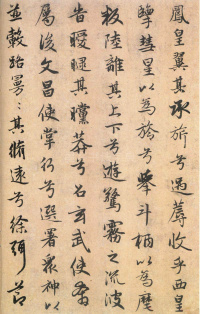 鳳皇翼其承旂兮遇蓐收乎西皇
擥彗星以為旍兮舉斗柄以為麾
叛陸離其上下兮遊驚霧之流波
旹曖曃其曭莽兮召玄武使奔
屬後文昌使掌行兮選署眾神以
並轂路曼〻其脩遠兮徐弭節